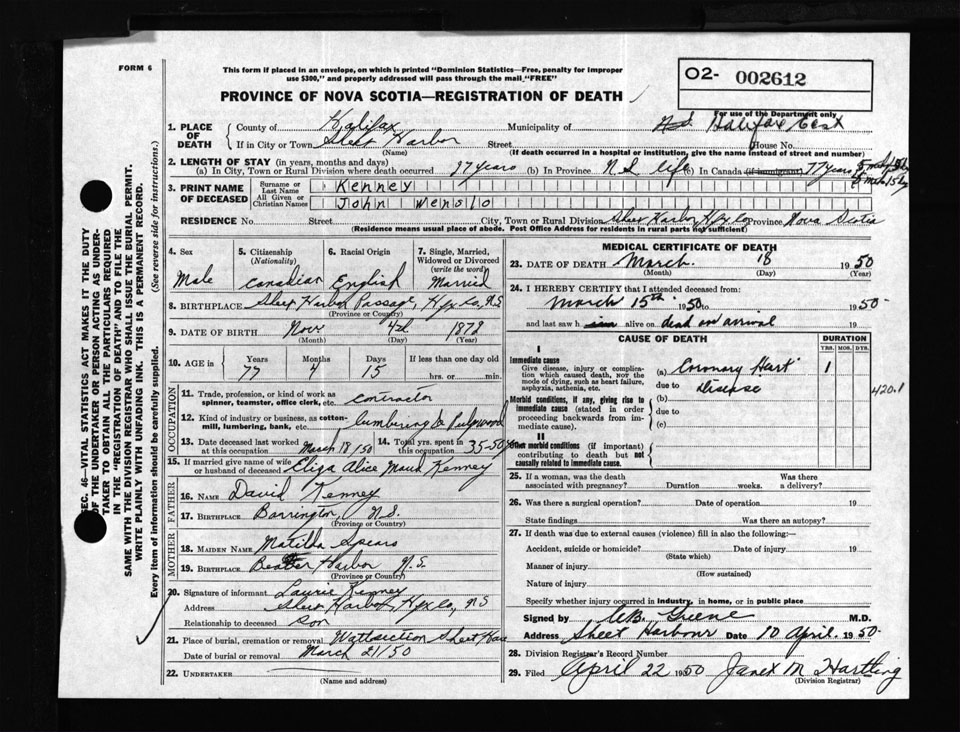 FORM 6
This form if placed in an envelope, on which is printed "Dominion Statistics—Free, penalty for improper
use $300," and properly addressed will pass through the mail "FREE"
PROVINCE OF NOVA SCOTIA—REGISTRATION OF DEATH
O2- 002612
For use of the Department only
1. PLACE OF DEATH { County of Halifax Municipality of Halifax East
If in City or Town Sheet Harbor Street House No.
(Name) (If death occurred in a hospital or institution, give the name instead of street and number)
2. LENGTH OF STAY (in years, months and days)
(a) In City, Town or Rural Division where death occurred 77 years (b) In Province N.S. life (c) In Canada (if immigrant) 77 years
3. PRINT NAME OF DECEASED { Surname or Last Name Kenney
All Given or Christian Names John Wenslo
RESIDENCE No. Street City, Town or Rural Division Sheet Harbor Hfx Co Province Nova Scotia
(Residence means usual place of abode. Post Office Address for residents in rural parts not sufficient)
4. Sex Male
5. Citizenship (Nationality) Canadian
6. Racial Origin English
7. Single, Married, Widowed or Divorced (write the word) Married
8. BIRTHPLACE Sheet Harbor Passage, Hfx Co, N.S
(Province or Country)
9. DATE OF BIRTH Nov 4th 1872
(Month) (Day) (Year)
10. AGE is Years 77 Months 4 Days 15 If less than one day old hrs. or min.
OCCUPATION
11. Trade, profession, or kind of work as spinner, teamster, office clerk, etc. contractor
12. Kind of industry or business, as cotton-mill, lumbering, bank, etc. lumbering & Pulpwood
13. Date deceased last worked at this occupation March 18/50 14. Total yrs. spent in this occupation 35-50
15. If married give name of wife or husband of deceased Eliza Alice Maud Kenney
FATHER
16. NAME David Kenney
17. BIRTHPLACE Barrington, N.S.
(Province or Country)
MOTHER
18. MAIDEN NAME Matilda Spears
19. BIRTHPLACE Harbor N.S.
(Province or Country)
20. Signature of informant Laurie Kenney
Address Sheet Harbor, Hfx Co, NS
Relationship to deceased son
21. Place of burial, cremation or removal Watt section Sheet
Date of burial or removal March 21/50
22. UNDERTAKER
(Name and address)
MEDICAL CERTIFICATE OF DEATH
23. DATE OF DEATH March 18 1950
(Month) (Day) (Year)
24. I HEREBY CERTIFY that I attended deceased from:
March 15th 1950 to 1950
and last saw h im alive on dead on arrival 19
CAUSE OF DEATH DURATION
YRS. MOS. DYS.
I
Immediate cause
Give disease, injury or complication which caused death, NOT the mode of dying, such as heart failure, asphyxia, asthenia, etc.
(a) Coronary Hart 1
due to disease 420.1
Morbid conditions, if any, giving rise to immediate cause (stated in order proceeding backwards from immediate cause).
(b)
due to
(c)
II
Other morbid conditions (if important) contributing to death but not causally related to immediate cause.
25. If a woman, was the death associated with pregnancy? Duration weeks. Was there a delivery?
26. Was there a surgical operation? Date of operation 19
State findings Was there an autopsy?
27. If death was due to external causes (violence) fill in also the following:—
Accident, suicide or homicide? Date of injury 19
(State which)
Manner of injury
(How sustained)
Nature of injury
Specify whether injury occurred in industry, in home, or in public place
Signed by Greene M.D.
Address Sheet Harbour Date 10 April. 1950.
28. Division Registrar's Record Number
29. Filed April 22 1950 Janet M Hartling
(Division Registrar)
SEC. 46—VITAL STATISTICS ACT MAKES IT THE DUTY
OF THE UNDERTAKER OR PERSON ACTING AS UNDER-
TAKER TO OBTAIN ALL THE PARTICULARS REQUIRED
IN THE "REGISTRATION OF DEATH" AND TO FILE THE
SAME WITH THE DIVISION REGISTRAR WHO SHALL ISSUE THE BURIAL PERMIT.
WRITE PLAINLY WITH UNFADING INK. THIS IS A PERMANENT RECORD.
Every item of information should be carefully supplied. (See reverse side for instructions.)